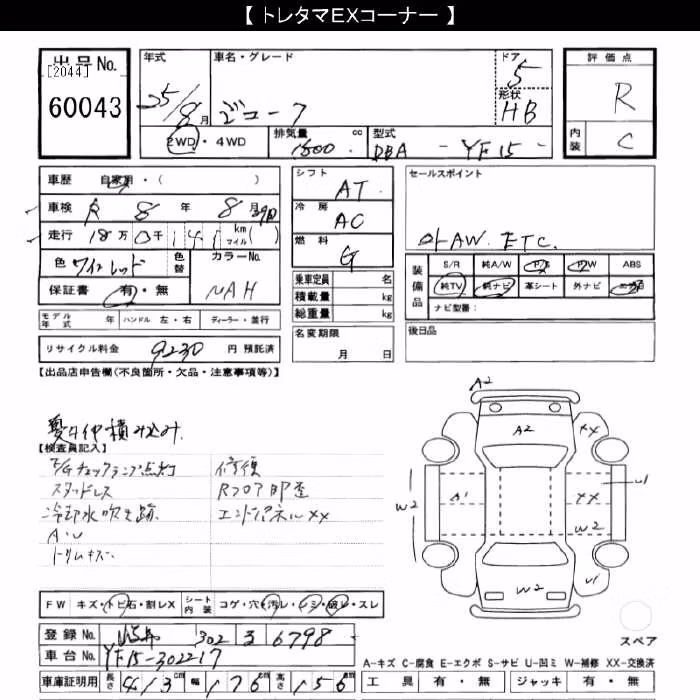 【 トレタマEXコーナー 】
出品No.
[2044]
60043
年式
25/8月
車名・グレード
ジューク
ドア
5
形状
HB
2WD・4WD
排気量
1500 cc
型式
DBA - YF15 -
評価点
R
内装
C
車歴 自家用・( )
車検 R 8 年 8 月
走行 18万0千141 km マイル( )
色 ワインレッド
色替
カラーNo.
NAH
保証書 有・無
モデル年式 年 ハンドル 左・右 ディーラー・並行
リサイクル料金 9230 円 預託済
シフト AT
冷房 AC
燃料 G
乗車定員 名
積載量 kg
総重量 kg
名変期限
月 日
セールスポイント
社外AW. ETC.
装備品
S/R 純A/W P/S P/W ABS
純TV 純ナビ 革シート 外ナビ エアB
ナビ型番:
後日品
【出品店申告欄(不良箇所・欠品・注意事項等)】
夏タイヤ積み込み.
【検査員記入】
E/Gチェックランプ点灯
スタッドレス
冷却水吹き跡
A・U
トリムキズ
修復
Rフロア凹歪
エンドパネルXX
A2
A2
XX
A1
XX
U1
W2
W2
W2
U1
スペア
FW キズ・トビ石・割レX
シート内装 コゲ・穴・汚レ・シミ・破レ・スレ
登録No. 302 る 6798
車台No. YF15-302217
車庫証明用 長さ 413cm 幅 176cm 高さ 156cm
A-キズ C-腐食 E-エクボ S-サビ U-凹ミ W-補修 XX-交換済
工具 有・無 ジャッキ 有・無